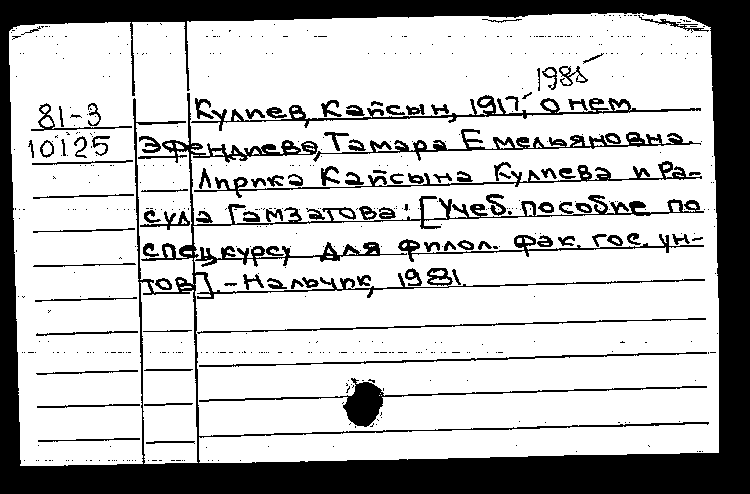 1985
81-3 Кулиев, Кайсын, 1917, о нем.
10125 Эфендиева, Тамара Емельяновна.
Лирика Кайсына Кулиева и Ра-
сула Гамзатова: [Учеб. пособие по
спецкурсу для филол. фак. гос. ун-
тов]. - Нальчик, 1981.